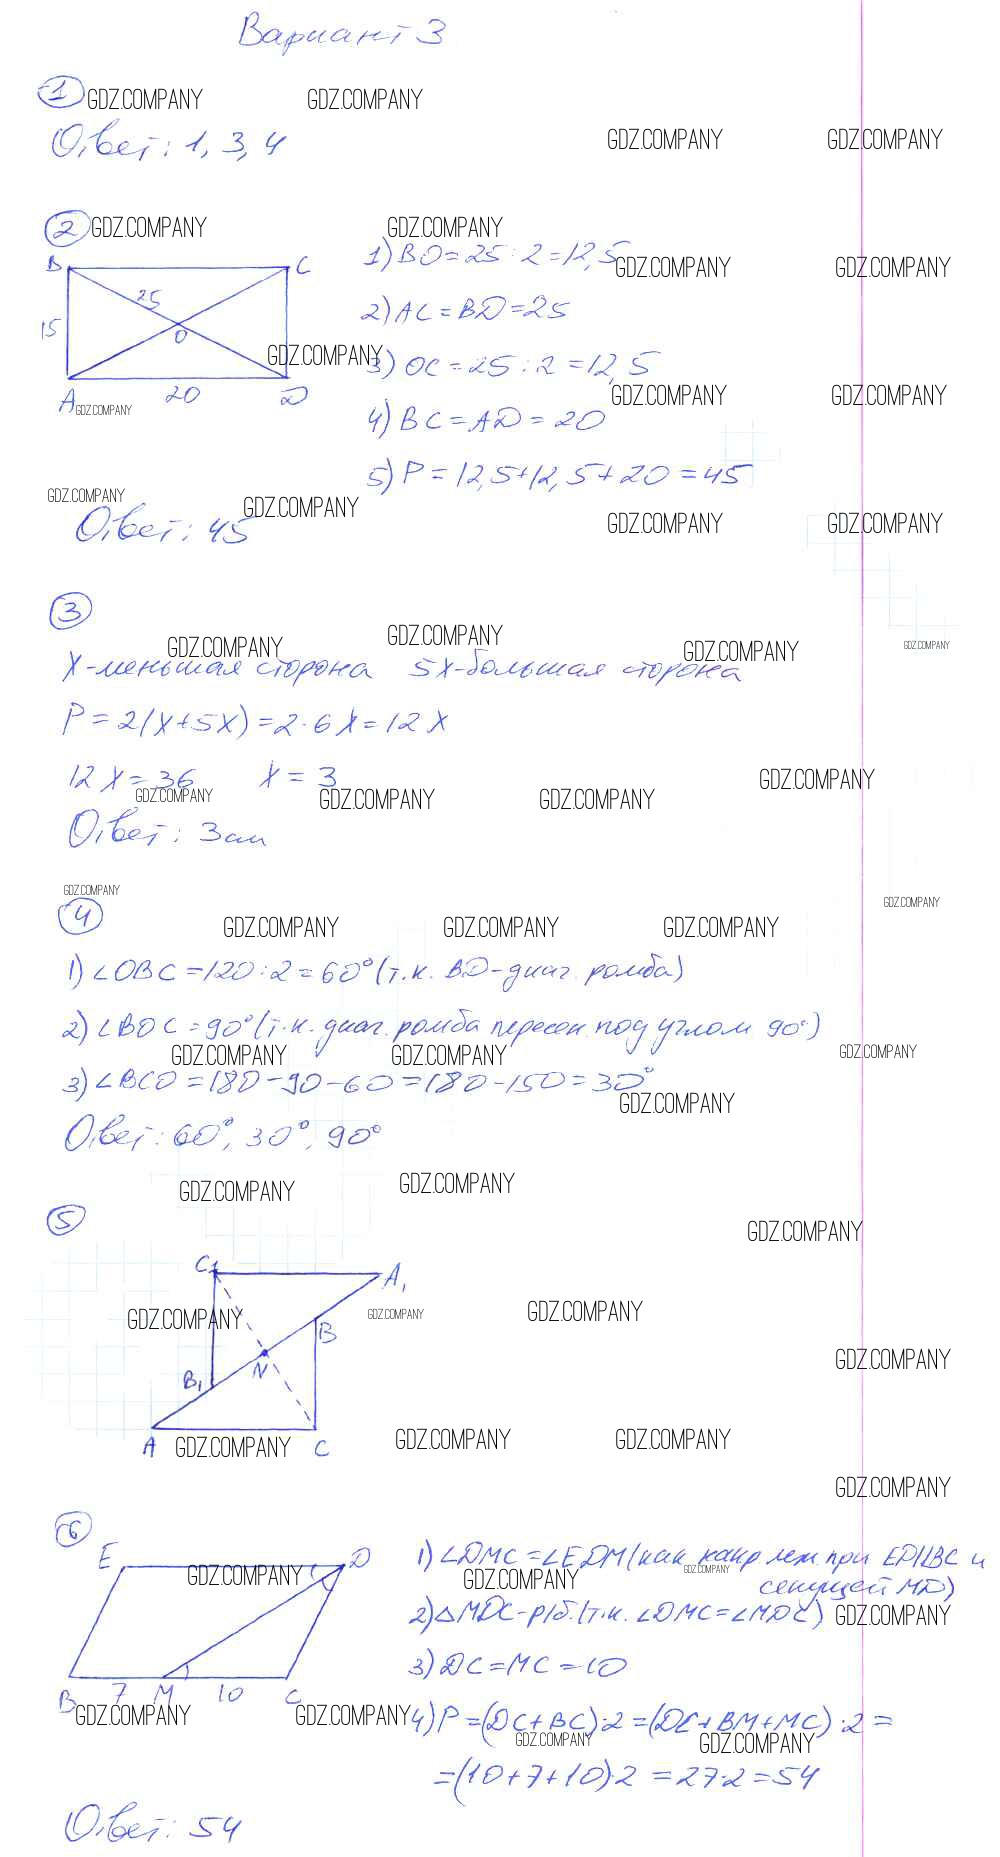 Вариант 3
1 GDZ.COMPANY GDZ.COMPANY
Ответ: 1, 3, 4
GDZ.COMPANY GDZ.COMPANY
2 GDZ.COMPANY GDZ.COMPANY
B C
25
15
O
A 20 D
1) BO = 25 : 2 = 12,5
GDZ.COMPANY GDZ.COMPANY
2) AC = BD = 25
GDZ.COMPANY
3) OC = 25 : 2 = 12,5
GDZ.COMPANY GDZ.COMPANY
GDZ.COMPANY
4) BC = AD = 20
5) P = 12,5 + 12,5 + 20 = 45
GDZ.COMPANY GDZ.COMPANY
Ответ: 45
GDZ.COMPANY GDZ.COMPANY
3
GDZ.COMPANY GDZ.COMPANY GDZ.COMPANY GDZ.COMPANY
x - меньшая сторона 5x - большая сторона
P = 2(x + 5x) = 2 · 6x = 12x
12x = 36 x = 3
GDZ.COMPANY
GDZ.COMPANY GDZ.COMPANY GDZ.COMPANY
Ответ: 3 см
GDZ.COMPANY GDZ.COMPANY
4
GDZ.COMPANY GDZ.COMPANY GDZ.COMPANY
1) ∠OBC = 120 : 2 = 60° (т.к. BD - диаг. ромба)
2) ∠BOC = 90° (т.к. диаг. ромба пересек. под углом 90°)
GDZ.COMPANY GDZ.COMPANY GDZ.COMPANY
3) ∠BCO = 180 - 90 - 60 = 180 - 150 = 30°
GDZ.COMPANY
Ответ: 60°, 30°, 90°
GDZ.COMPANY GDZ.COMPANY
5
GDZ.COMPANY
C1 A1
GDZ.COMPANY GDZ.COMPANY GDZ.COMPANY
B
N
GDZ.COMPANY
B1
A C
GDZ.COMPANY GDZ.COMPANY GDZ.COMPANY
GDZ.COMPANY
6
E D
GDZ.COMPANY
B 7 M 10 C
1) ∠DMC = ∠EDM (как накр. леж. при ED||BC и
GDZ.COMPANY GDZ.COMPANY
секущей MD)
2) △MDC - р/б. (т.к. ∠DMC = ∠MDC)
GDZ.COMPANY
3) DC = MC = 10
GDZ.COMPANY GDZ.COMPANY
4) P = (DC + BC) · 2 = (DC + BM + MC) · 2 =
GDZ.COMPANY GDZ.COMPANY
= (10 + 7 + 10) · 2 = 27 · 2 = 54
Ответ: 54